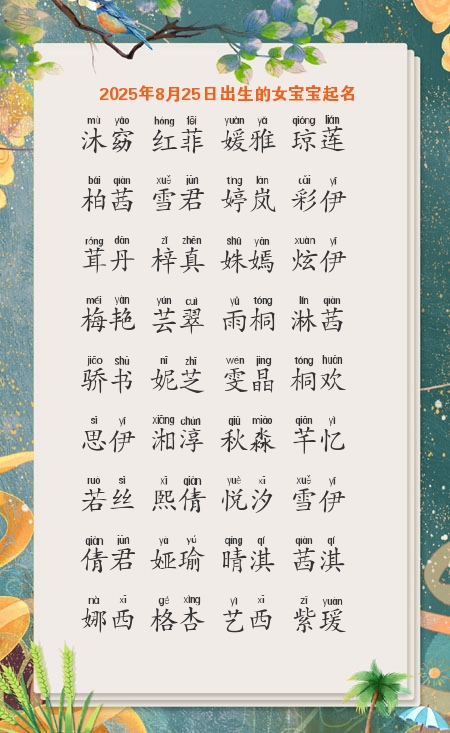 2025年8月25日出生的女宝宝起名
mù yǎo hóng fēi yuàn yǎ qióng lián
沐窈 红菲 媛雅 琼莲
bǎi qiàn xuě jūn tíng lán cǎi yī
柏茜 雪君 婷岚 彩伊
róng dān zǐ zhēn shū yān xuàn yī
茸丹 梓真 姝嫣 炫伊
méi yàn yún cuì yǔ tóng lín qiàn
梅艳 芸翠 雨桐 淋茜
jiāo shū nī zhī wén jīng tóng huān
骄书 妮芝 雯晶 桐欢
sī yī xiāng chún qiū miǎo qiān yì
思伊 湘淳 秋淼 芊忆
ruò sī xī qiàn yuè xī xuě yī
若丝 熙倩 悦汐 雪伊
qiàn jūn yà yú qíng qí qiàn qí
倩君 娅瑜 晴淇 茜淇
nà xī gé xìng yì xī zǐ yuàn
娜西 格杏 艺西 紫瑗